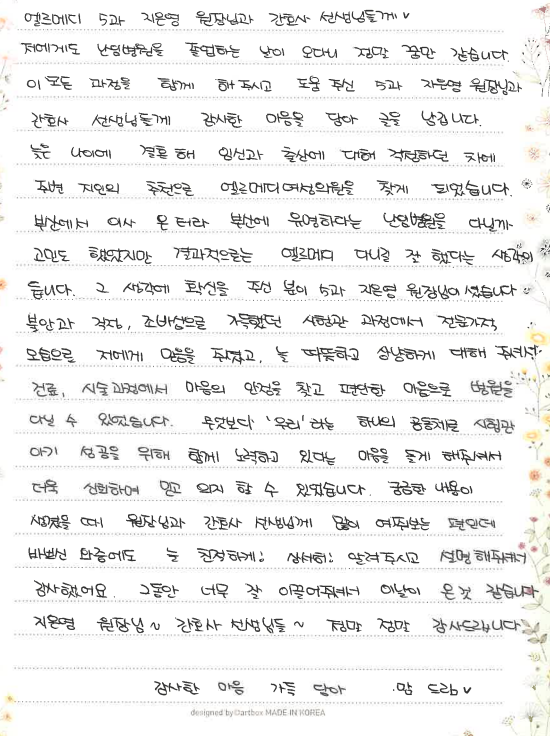 엘르메디 5과 지은영 원장님과 간호사 선생님들께♥
저에게도 난임병원을 졸업하는 날이 오다니 정말 꿈만 같습니다.
이 모든 과정을 함께 해 주시고 도움 주신 5과 지은영 원장님과
간호사 선생님들께 감사한 마음을 담아 글을 남깁니다.
늦은 나이에 결혼해 임신과 출산에 대해 걱정하던 차에
주변 지인의 추천으로 엘르메디여성의원을 찾게 되었습니다.
부산에서 이사 온 터라 부산에 유명하다는 난임병원을 다닐까
고민도 했었지만 결과적으로는 엘르메디 다니길 잘 했다는 생각이
듭니다. 그 생각에 확신을 주신 분이 5과 지은영 원장님이셨습니다.
불안과 걱정, 조바심으로 가득했던 시험관 과정에서 전문가적
모습으로 저에게 믿음을 주셨고, 늘 따뜻하고 상냥하게 대해 주셔서
진료, 시술과정에서 마음의 안정을 찾고 편안한 마음으로 병원을
다닐 수 있었습니다. 무엇보다 '우리'라는 하나의 공동체로 시험관
아기 성공을 위해 함께 노력하고 있다는 마음을 들게 해주셔서
더욱 신뢰하며 믿고 의지 할 수 있었습니다. 궁금한 내용이
생겼을 때 원장님과 간호사 선생님께 많이 여쭤보는 편인데
바쁘신 와중에도 늘 친절하게! 상세히! 알려주시고 설명해주셔서
감사했어요. 그동안 너무 잘 이끌어주셔서 이날이 온 것 같습니다
지은영 원장님~ 간호사 선생님들~ 정말 정말 감사드립니다.
감사한 마음 가득 담아 .맘 드림♥
designed by Dartbox MADE IN KOREA